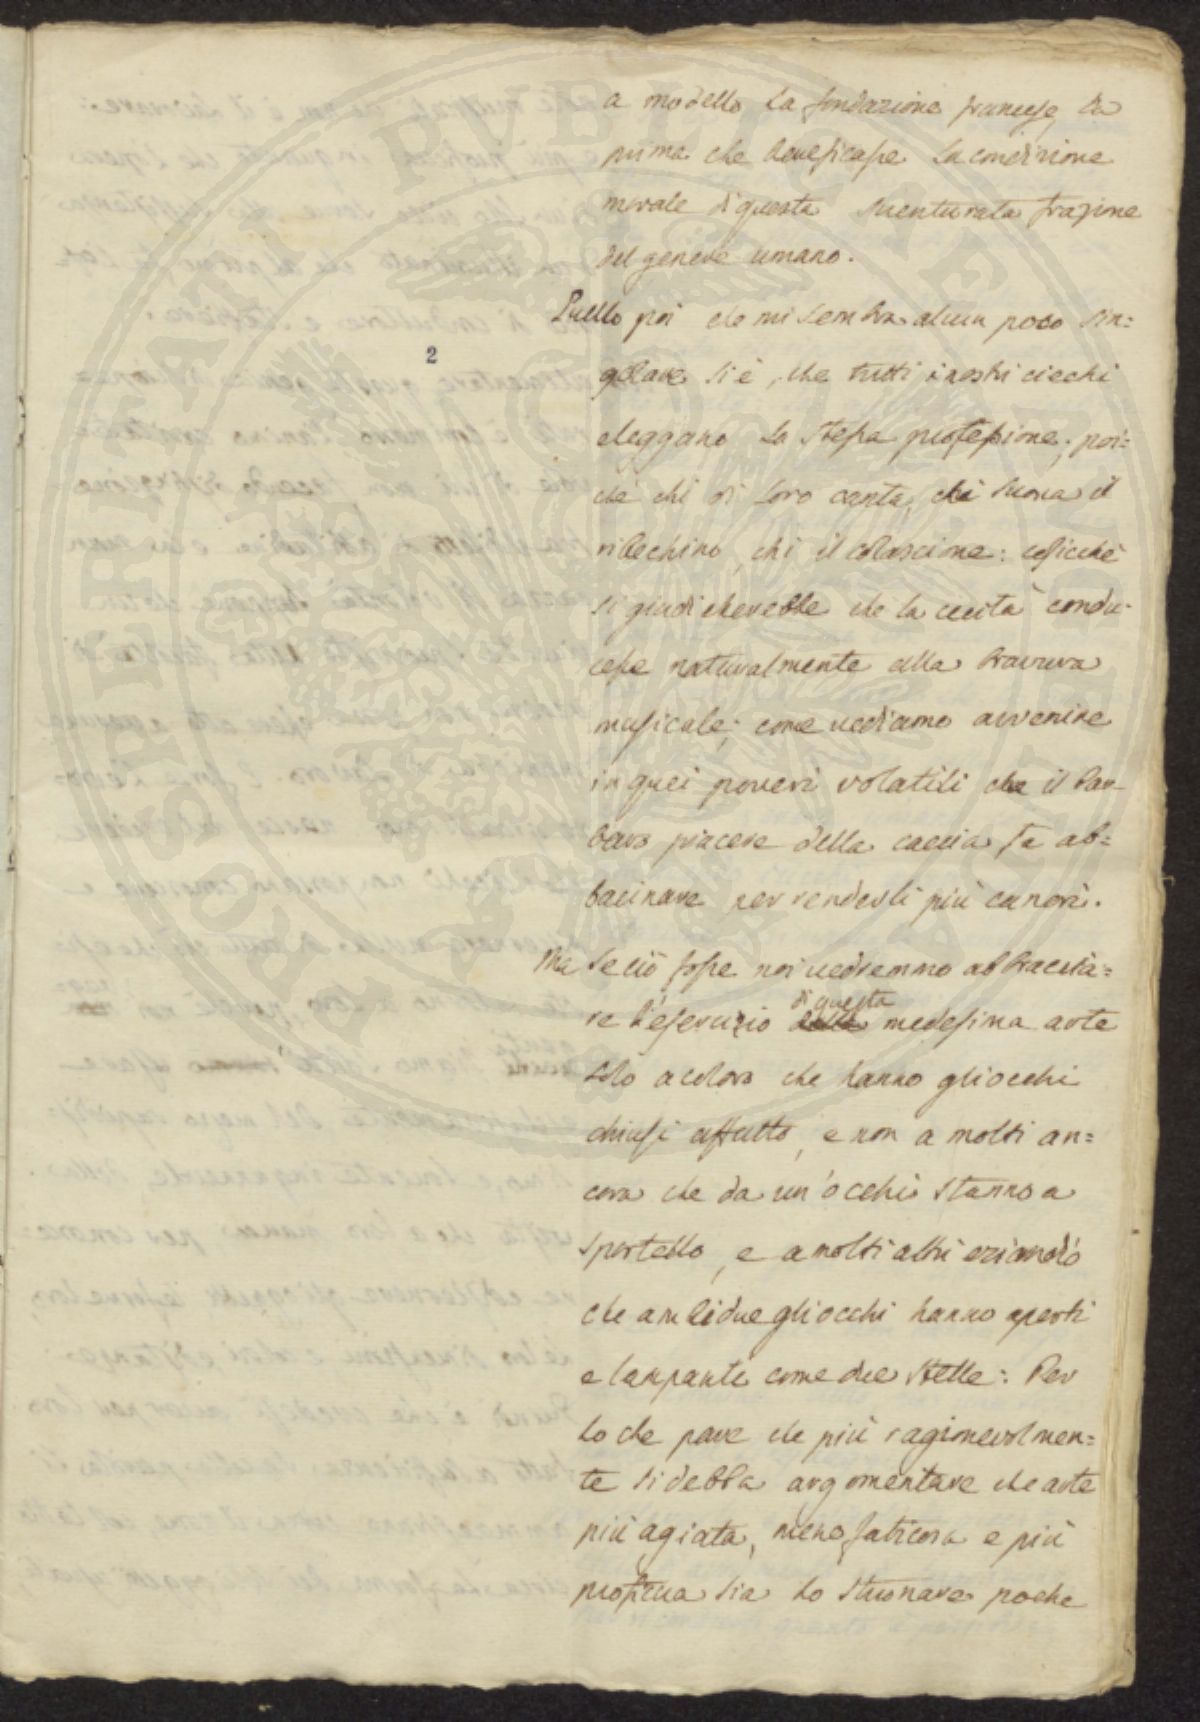 a modello la fondazione francese, la
prima che beneficasse la condizione
morale di questa sventurata frazione
del genere umano.
Quello poi che mi sembra alcun poco sin=
2
golare si è, che tutti i nostri ciechi
eleggano la stessa professione; poi=
ché chi di loro canta, chi suona il
ribechino, chi il colascione: cosicché
si giudicherebbe che la cecità condu-
cesse naturalmente alla bravura
musicale; come vediamo avvenire
in quei poveri volatili che il bar-
baro piacere della caccia fa ab=
bacinare per renderli più canori.
Ma se ciò fosse noi vedremmo abbraccia=
re l'esercizio della di questa medesima arte
solo a coloro che hanno gli occhi
chiusi affatto, e non a molti an=
cora che da un'occhio stanno a
sportello, e a molti altri eziandio
che ambidue gli occhi hanno aperti
e lampanti come due stelle: Per
lo che pare che più ragionevolmen=
te si debba argomentare che arte
più agiata, meno faticosa e più
proficua sia lo stuonare poche
PVBLICAE